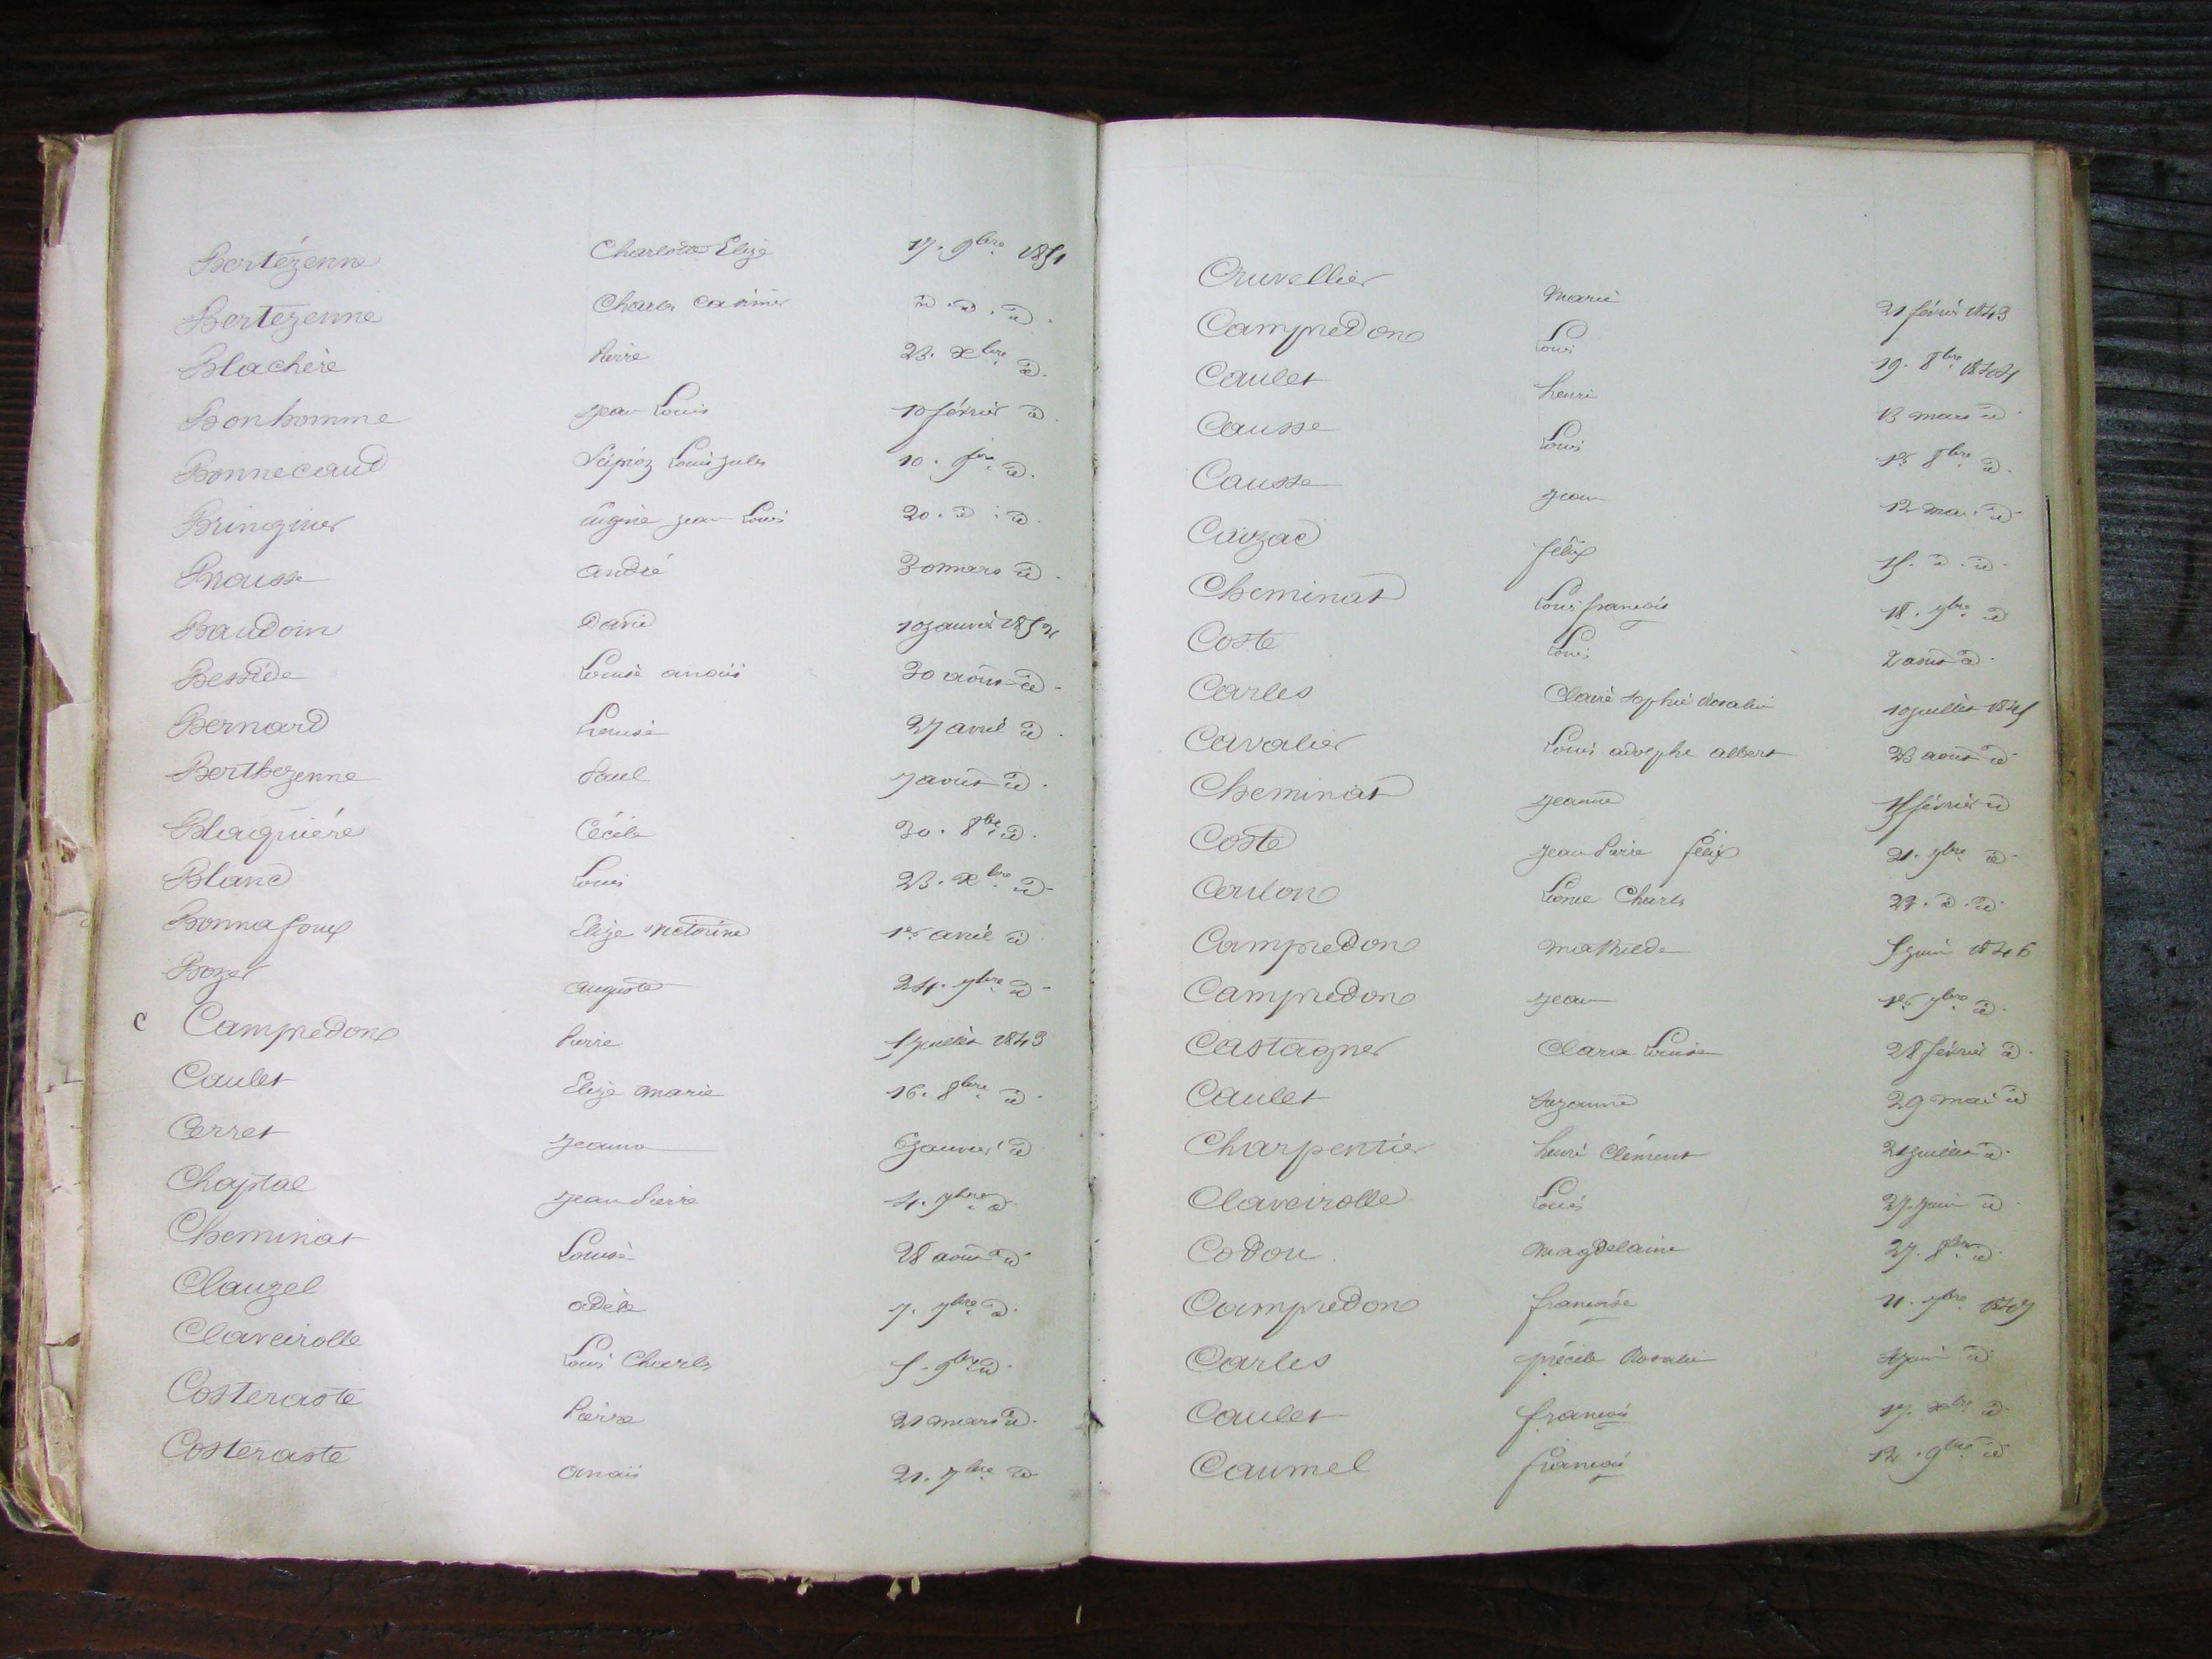 Bertézenne Charlotte Elize 17. 9bre 1851
Bertezenne Charles Casimir d. d. d.
Blachère Pierre 23. Xbre d.
Bonhomme Jean Louis 10 février d.
Bonnecaud Louis Jules 10. d.
Bringuier Eugène Jean Louis 20. d. d.
Brousse André 30 mars d.
Baudoin David 10 janvier
Bessède Louise anaïs 30 août d.
Bernard Louise 27 avril d.
Berthezenne Paul 7 août d.
Blaquière Cécile 30. 8bre d.
Blanc Louis 23. Xbre d.
Bonnafoux Elize Victorine 1er avril d.
Boyer auguste 24. 7bre d.
C Campredon Pierre 5 juillet 1843
Caulet Elize marie 16. 8bre d.
Cerret Jeanne 6 janvier d.
Chaptal Jean Pierre 4. 7bre d.
Cheminat Louise 28 août d.
Clauzel adèle 7. 7bre d.
Claveirolle Louis Charles 5. 9bre d.
Costeraste Pierre 21 mars d.
Costeraste anaïs 21. 7bre d.
Cruvellier Marie 21 février 1843
Campredon Louis 19. 8bre 1844
Caulet henri 13 mars d.
Causse Louis 1er 8bre d.
Causse Jean 12 mai d.
Cauzac félix 15. d. d.
Cheminat Louis françois 18. 7bre d.
Coste Louis 2 août d.
Carles Claire Sophie Rosalie 10 juillet 1845
Cavalier Louis adolphe albert 23 août d.
Cheminat Jeanne 15 février d.
Coste Jean Pierre félix 21. 7bre d.
Léonce Charles 22. d. d.
Campredon Mathilde 5 juin 1846
Campredon Jean 1er 7bre d.
Castagner Clara Louise 28 février d.
Caulet Suzanne 29 mai d.
Charpentier henri Clément 21 juillet d.
Claveirolle Louis 27 juin d.
Codou Magdelaine 27. 8bre d.
Campredon françoise 11. 7bre 1847
Carles Rosalie juin d.
Caulet françois 17. Xbre d.
Caumel françois 12. 9bre d.